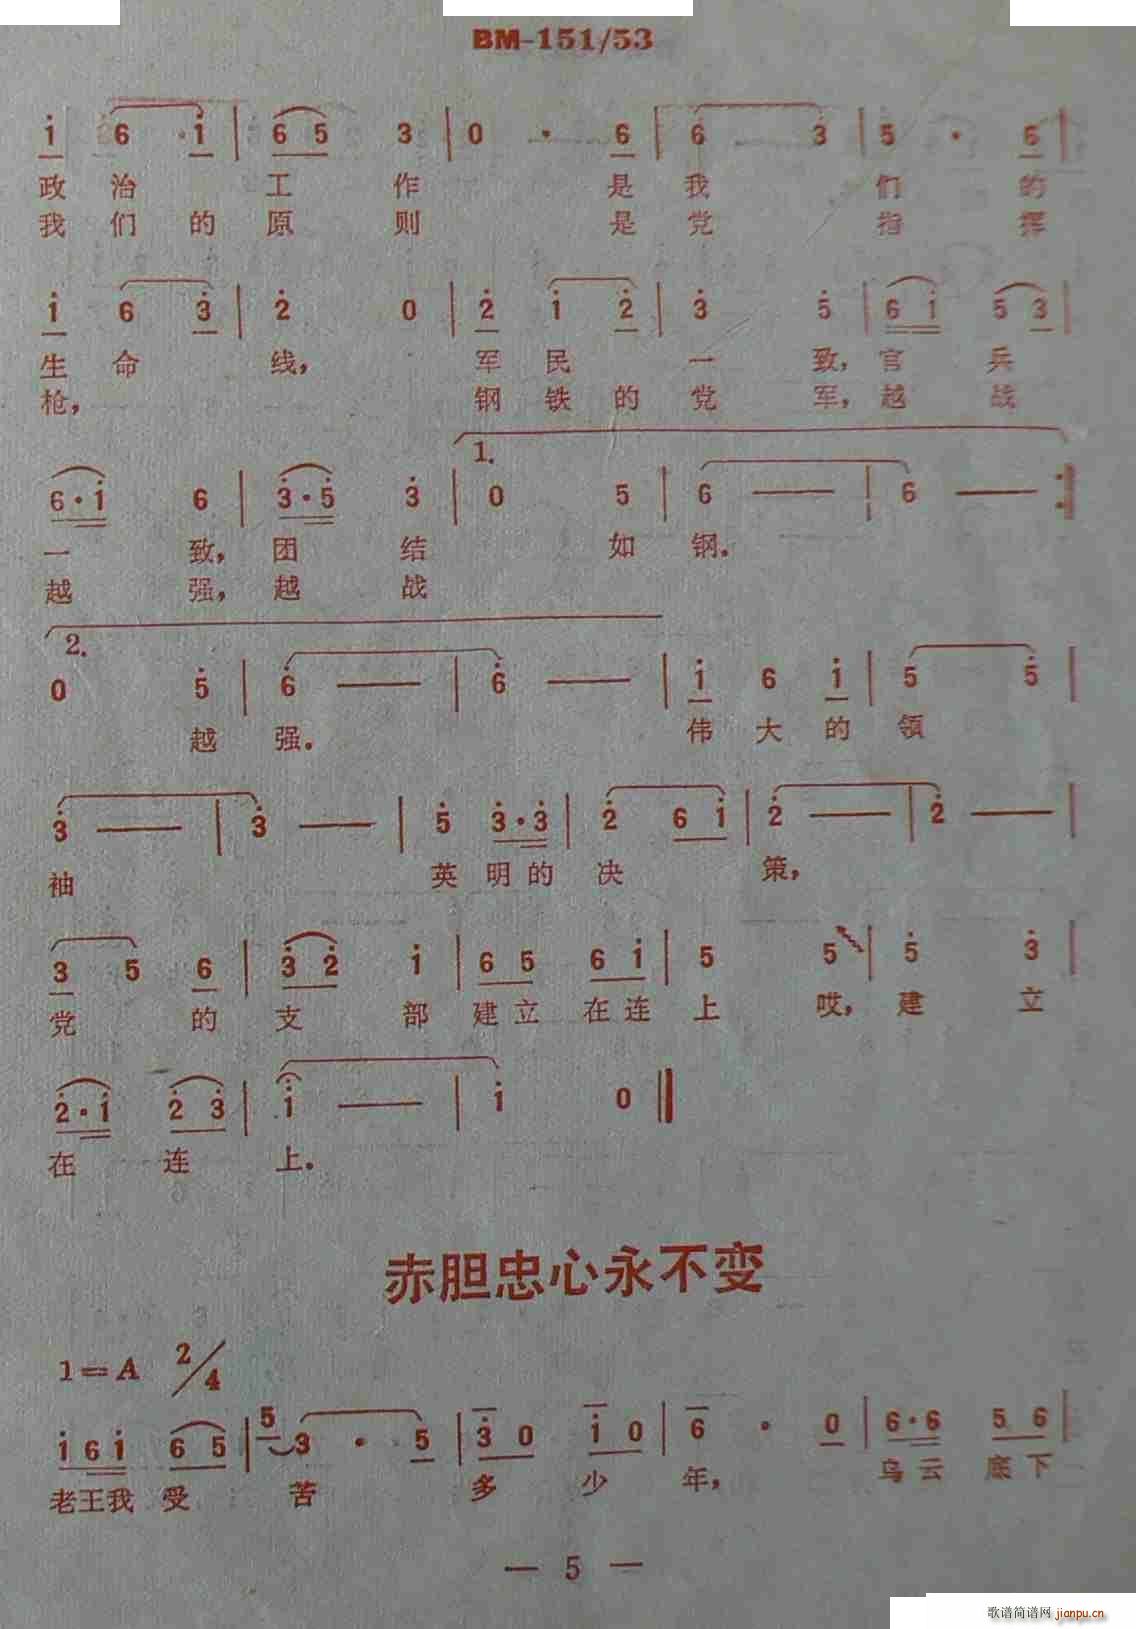 BM-151/53
i 6 · i | 6 5 3 | 0 · 6 | 6 3 | 5 · 6 |
政 治 工 作 是 我 们 的
我 们 的 原 则 是 党 指 挥
i 6 3 | 2 0 | 2 i 2 | 3 5 | 6 i 5 3 |
生 命 线, 军 民 一 致, 官 兵
枪, 钢 铁 的 党 军, 越 战
1.
6 · i 6 | 3 · 5 3 | 0 5 | 6 — | 6 — :|
一 致, 团 结 如 钢.
越 强, 越 战
2.
0 5 | 6 — | 6 — | i 6 i | 5 5 |
越 强. 伟 大 的 领
3 — | 3 — | 5 3 · 3 | 2 6 i | 2 — | 2 — |
袖 英 明 的 决 策,
3 5 6 | 3 2 i | 6 5 6 i | 5 5 | 5 3 |
党 的 支 部 建 立 在 连 上 哎, 建 立
2 · i 2 3 | i — | i 0 ‖
在 连 上.
赤胆忠心永不变
1=A 2/4
i 6 i 6 5 | 5 3 · 5 | 3 0 i 0 | 6 · 0 | 6 · 6 5 6 |
老 王 我 受 苦 多 少 年, 乌 云 底 下
— 5 —
歌谱简谱网 jianpu.cn